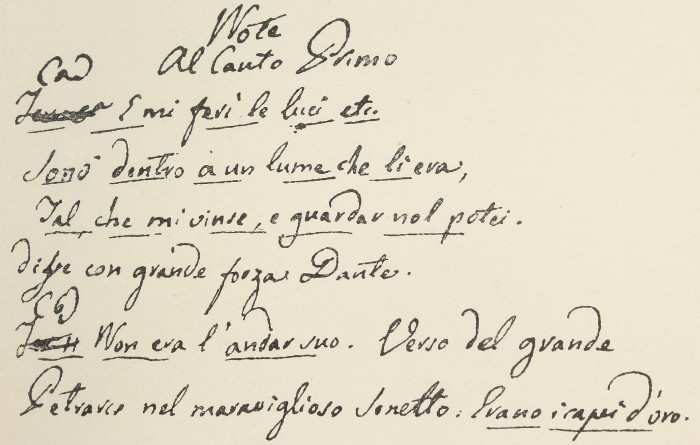 Note
Al Canto Primo
(a)
E mi ferì le luci etc.
Sonò dentro a un lume che li era,
Tal, che mi vinse, e guardar nol potei.
disse con grande forza Dante.
(b)
Non era l'andar suo. Verso del grande
Petrarca nel maraviglioso sonetto: Erano i capei d'oro.